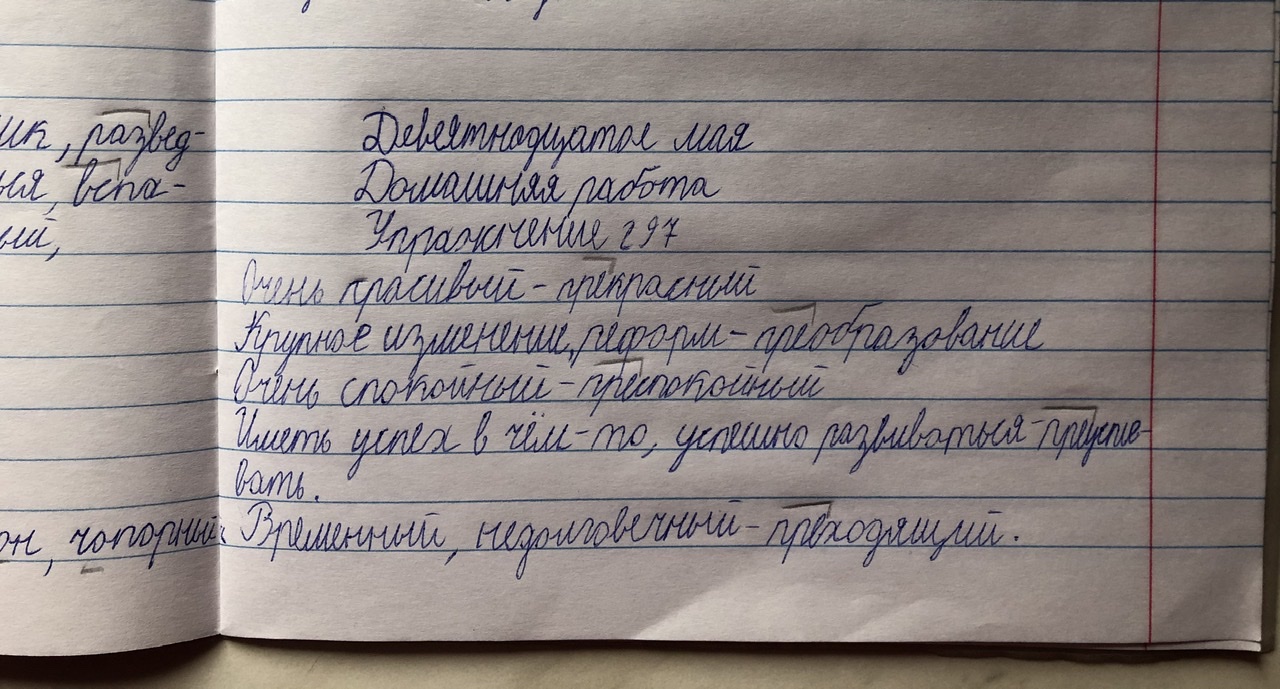 ик, развед-
ься, вспа-
ый,
он, чопорный
Девятнадцатое мая
Домашняя работа
Упражнение 297
Очень красивый - прекрасный
Крупное изменение, реформ - преобразование
Очень спокойный - преспокойный
Иметь успех в чём-то, успешно развиваться - преуспе-
вать.
Временный, недолговечный - преходящий.